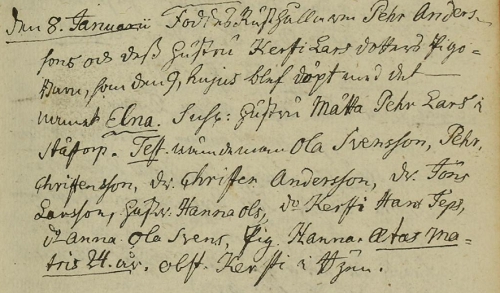 den 8. Januarii Föddes Rusthållaren Pehr Anders-
sons och dess Hustru Kersti Lars dotters Pigo-
Barn, som den 9, hujus blef döpt med det
namnet Elna. Susc: Hustru Mätta Pehr Lars i
Ståstorp. Test. nämdeman Ola Svensson, Pehr,
Christensson, dr. Christen Andersson, dr. Jöns
Larsson, Hustr. Hanna Ols, Kersti Hans Jeps,
Anna Ola Svens, Pig. Hanna. Ætas Ma-
tris 24. år. obst. Kersti i